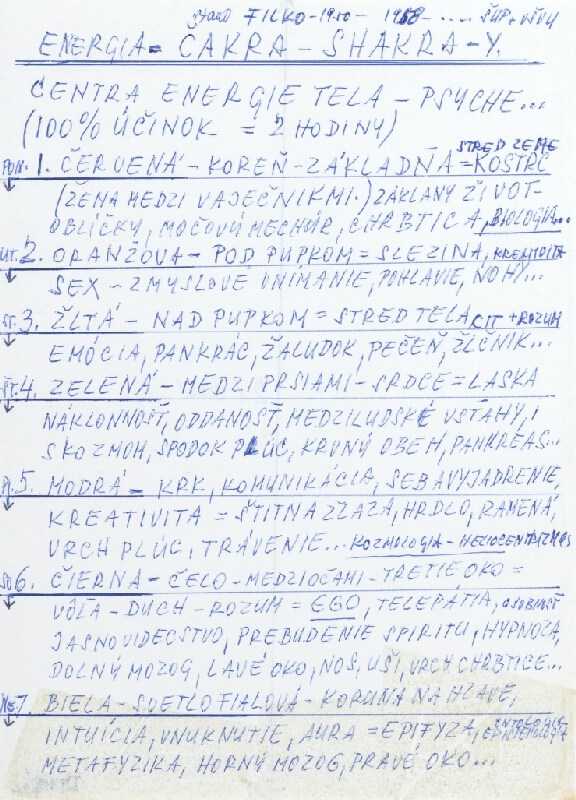 FILKO - 19 - 1958 - .... ŠUP + VŠVU
ENERGIA = ČAKRA - SHAKRA - Y.
CENTRA ENERGIE TELA - PSYCHE...
(100% ÚČINOK = 2 HODINY)
STRED ZEME
PON. 1. ČERVENÁ - KOREŇ - ZÁKLADŇA = KOSTRČ
(ŽENA MEDZI VAJEČNÍKMI.) ZÁKLANY ŽIVOT-
OBLIČKY, MOČOVÝ MECHÚR, CHRBTICA, BIOLOGIA...
UT. 2. ORANŽOVA - POD PUPKOM = SLEZINA,
SEX - ZMYSLOVÉ VNÍMANIE, POHLAVIE, NOHY...
ST. 3. ŽLTÁ - NAD PUPKOM = STRED TELA, CIT + ROZUM
EMÓCIA, PANKRÁC, ŽALUDOK, PEČEŇ, ŽLČNIK...
ŠT. 4. ZELENÁ - MEDZI PRSIAMI - SRDCE = LASKA
NÁKLONNOSŤ, ODDANOSŤ, MEDZILUDSKÉ VSŤAHY, I
S KOZMOH, SPODOK PLÚC, KRVNÝ OBEH, PANKREAS...
PI. 5. MODRÁ - KRK, KOMUNIKÁCIA, SEBAVYJADRENIE,
KREATIVITA = ŠTITNA ZLAZA, HRDLO, RAMENÁ,
VRCH PLÚC, TRÁVENIE... KOZMOLOGIA - HELIOCENTRIZMUS
SO 6. ČIERNA - ČELO - MEDZIOČAMI - TRETIE OKO =
VÔĽA - DUCH - ROZUM = EGO, TELEPÁTIA, OSOBNOSŤ
JASNOVIDECSTVO, PREBUDENIE SPIRITU, HYPNOZA,
DOLNÝ MOZOG, LAVÉ OKO, NOS, UŠI, VRCH CHRBTICE...
NE 7. BIELA - SVETLO FIALOVÁ - KORUNA NA HLAVE,
INTUÍCIA, VNUKNUTIE, AURA = EPIFYZA, ONTOLOGIA EPISTEMOLOGIA
METAFYZIKA, HORNÝ MOZOG, PRAVÉ OKO...